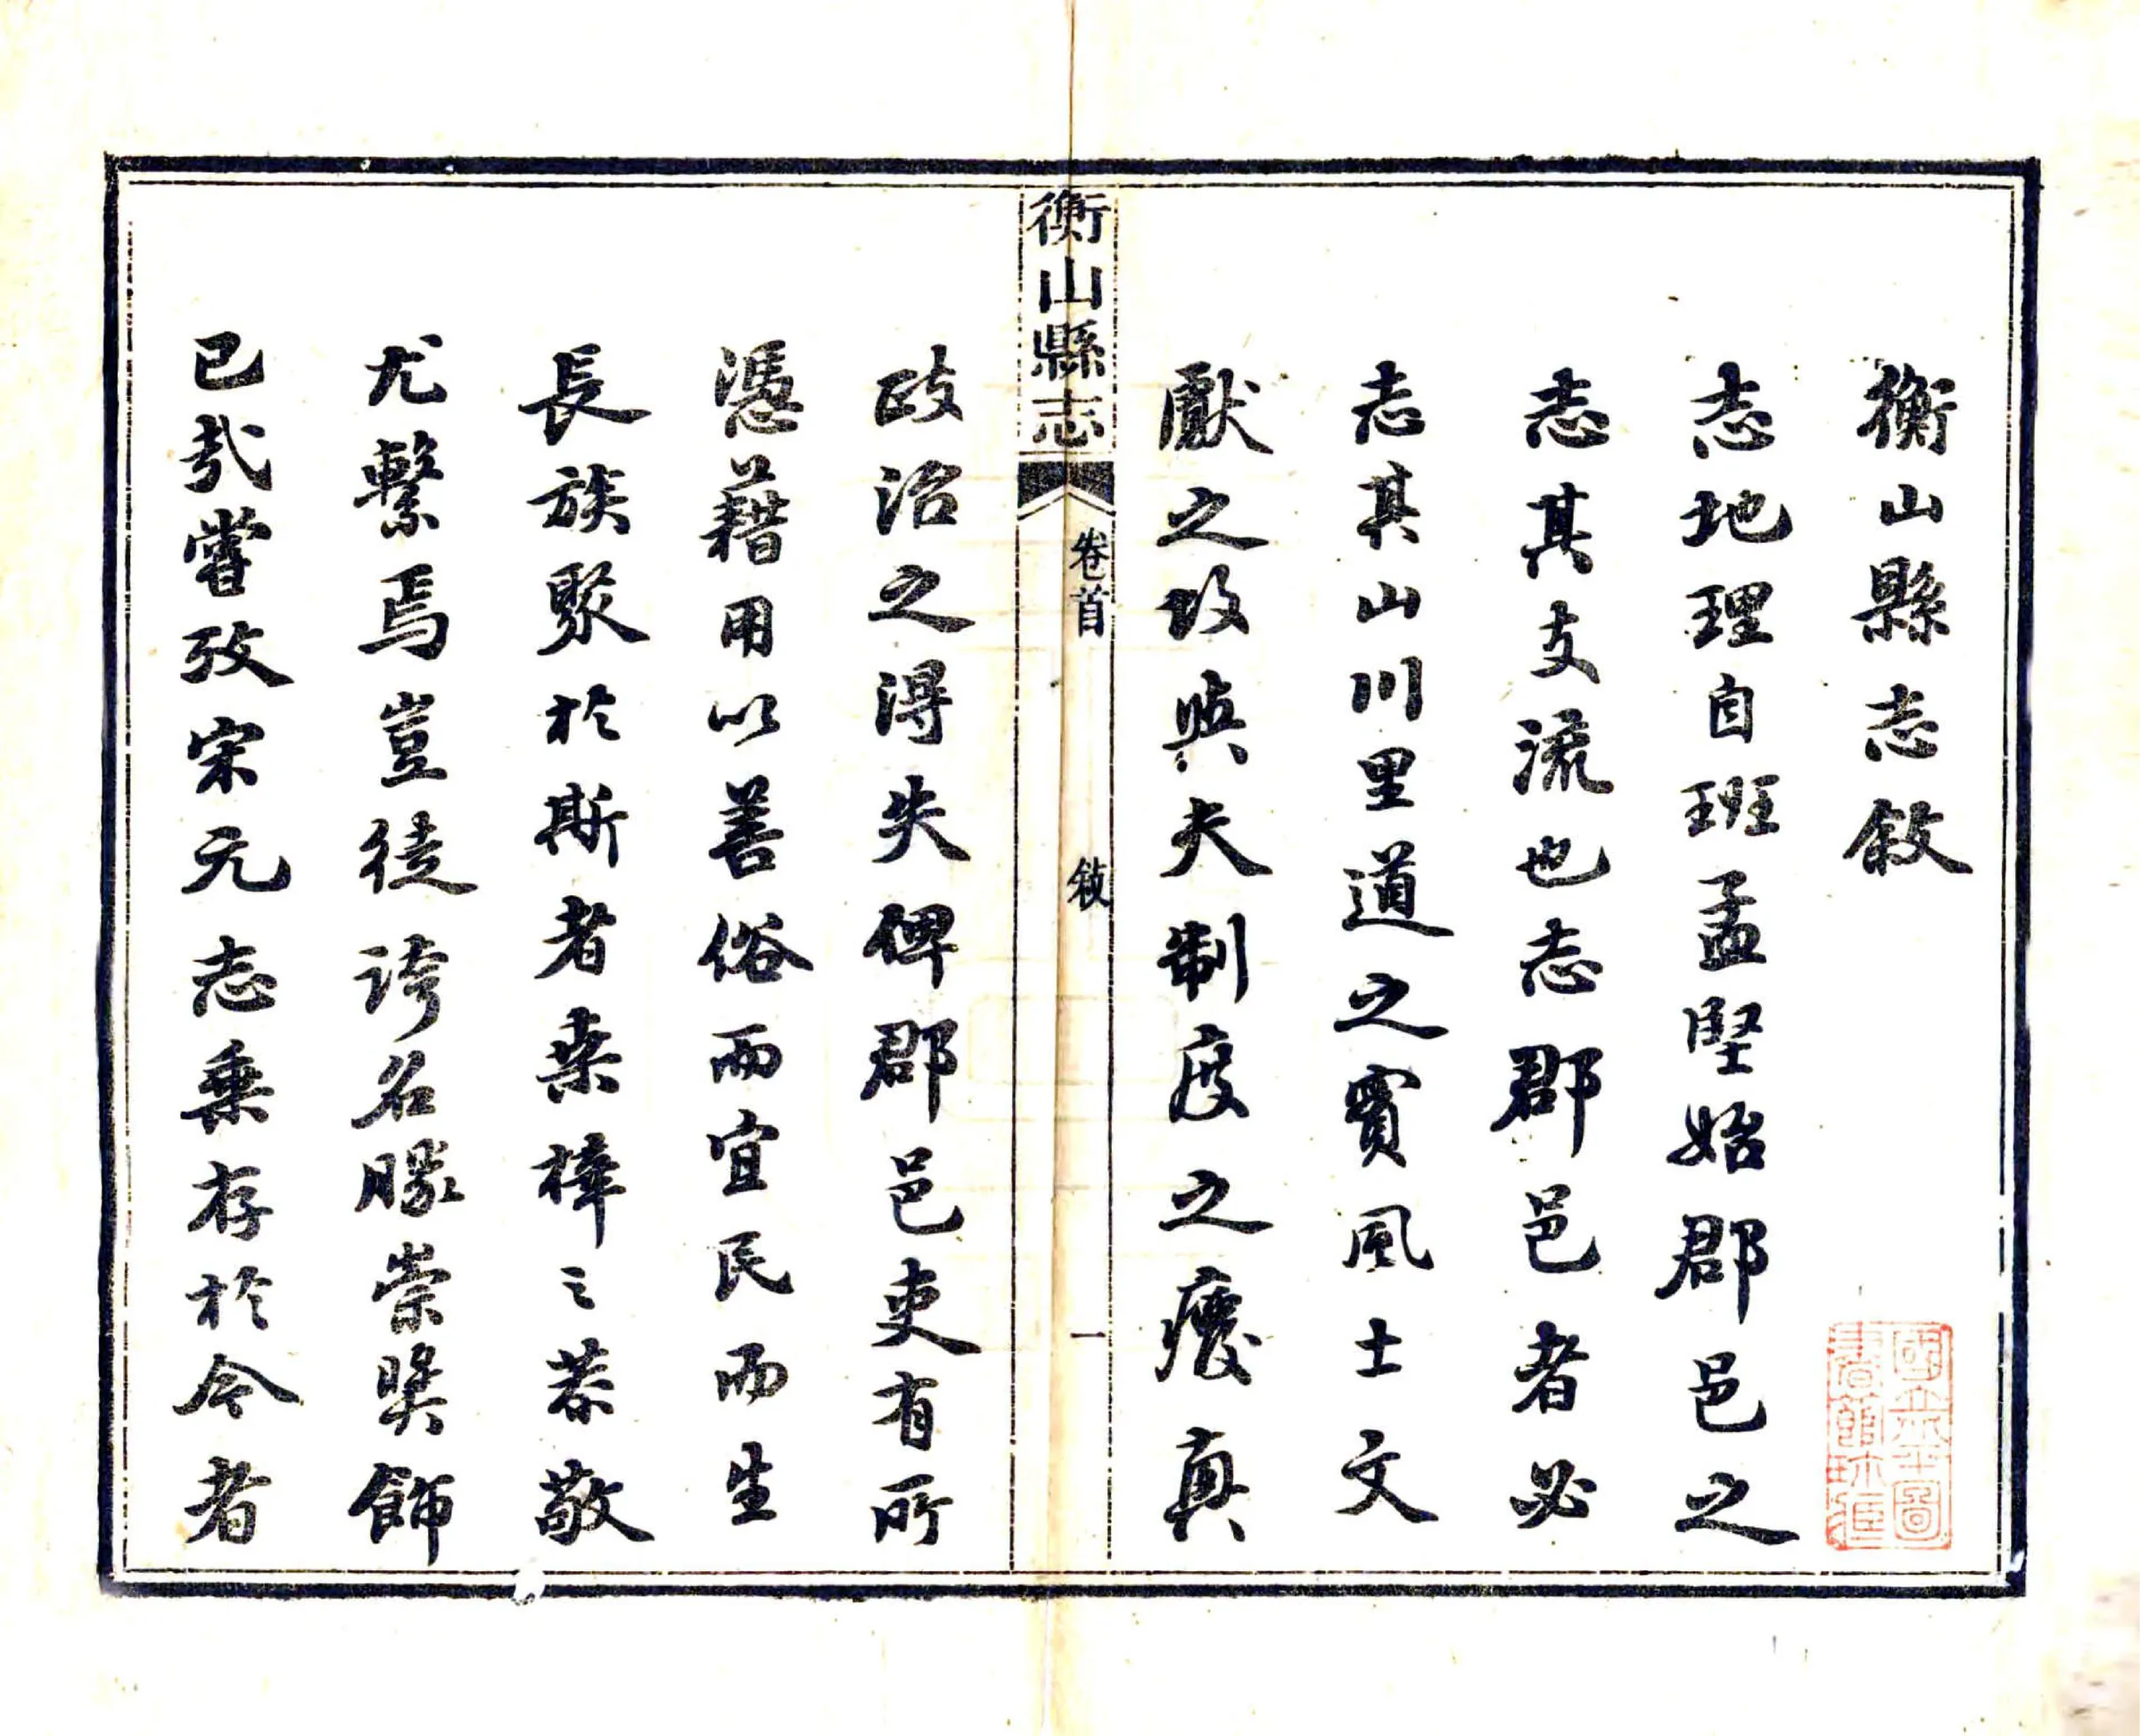 衡山縣志敘
志地理自班孟堅始郡邑之
志其支流也志郡邑者必
志其山川里道之實風土文
獻之攷與夫制度之癈真
衡山縣志
卷首
敘
一
政治之得失俾郡邑吏有所
憑藉用以善俗而宜民而生
長族聚於斯者桒梓之恭敬
尤繫焉豈徒誇名勝崇奬飾
已㢤嘗攷宋元志乗存於今者
國立北平圖
書館珍藏